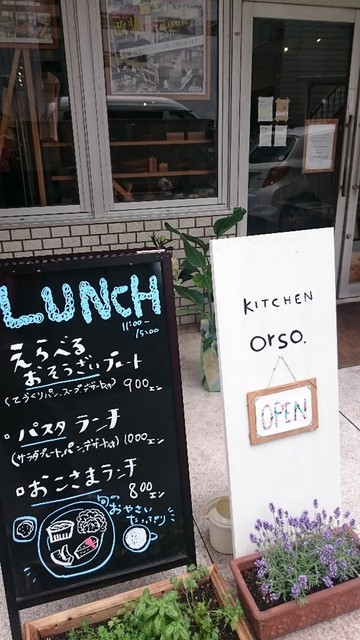 LUNCH
11:00~
15:00
えらべる
おそうざいプレート
(てづくりパン、スープ、デザート付) 900エン
・パスタランチ
(サラダプレート、パン、デザート付) 1000エン
・おこさまランチ
800エン
旬の
おやさい
たっぷり
KITCHEN
orso.
OPEN